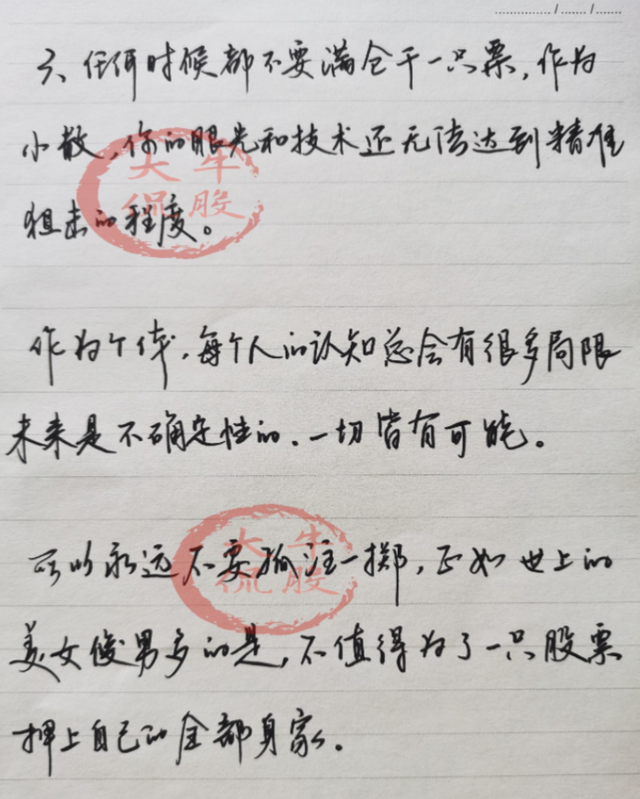 六、任何时候都不要满仓干一只票,作为
小散,你的眼光和技术还无法达到精准
狙击的程度。
大牛
侃股
作为个体,每个人的认知总会有很多局限
未来是不确定性的、一切皆有可能。
可以永远不要孤注一掷,正如世上的
大牛
侃股
美女俊男多的是,不值得为了一只股票
押上自己的全部身家。